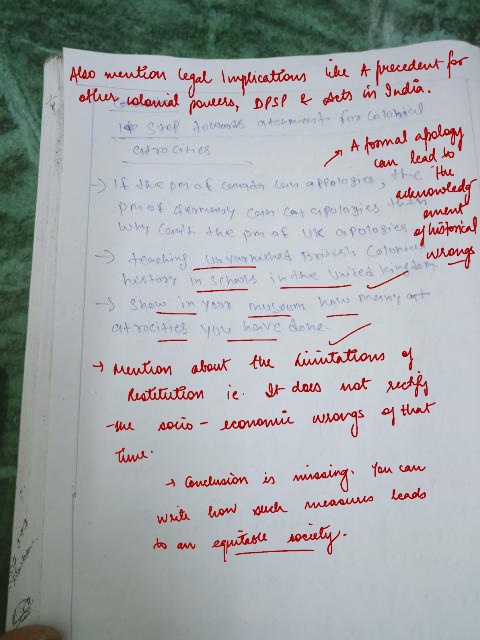 Also mention legal Implications like A precedent for
other colonial powers, DPSP & Acts in India.
Step towards atonment for colonial
atrocities
→ A formal apology
can lead to
the
acknowledg
ement
of historical
wrongs
→ If the pm of canada can appologies, the
pm of Germany can apologies then
why can't the pm of UK apologies
→ teaching unvarnished British Colonial
history in schools in the United Kingdom
→ Show in your museum how many at
atrocities you have done.
→ Mention about the Limitations of
Restitution ie. It does not rectify
the socio-economic wrongs of that
time.
→ Conclusion is missing. You can
write how such measures leads
to an equitable society.